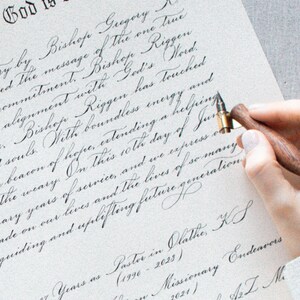 God is
ry by Bishop Gregory K
ed the message of the one true
commitment, Bishop Riggen
alignment with God's Word
Bishop Riggen has touched
souls. With boundless energy and
beacon of hope, extending a helping
the weary. On this 10th day of Ju
ary years of service, and we express o
ade on our lives and the lives of so many
guiding and uplifting future generation
Years as Pastor in Olathe, KS
(1990 - 2022)
Missionary Endeavors
2021)